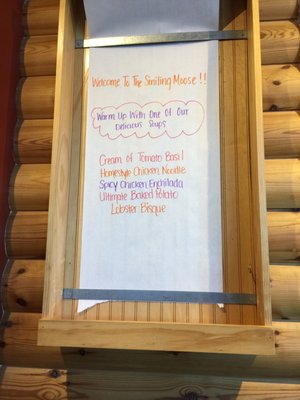 Welcome To The Smiling Moose!!
Warm Up With One Of Our
Delicious Soups
Cream of Tomato Basil
Homestyle Chicken Noodle
Spicy Chicken Enchilada
Ultimate Baked Potato
Lobster Bisque